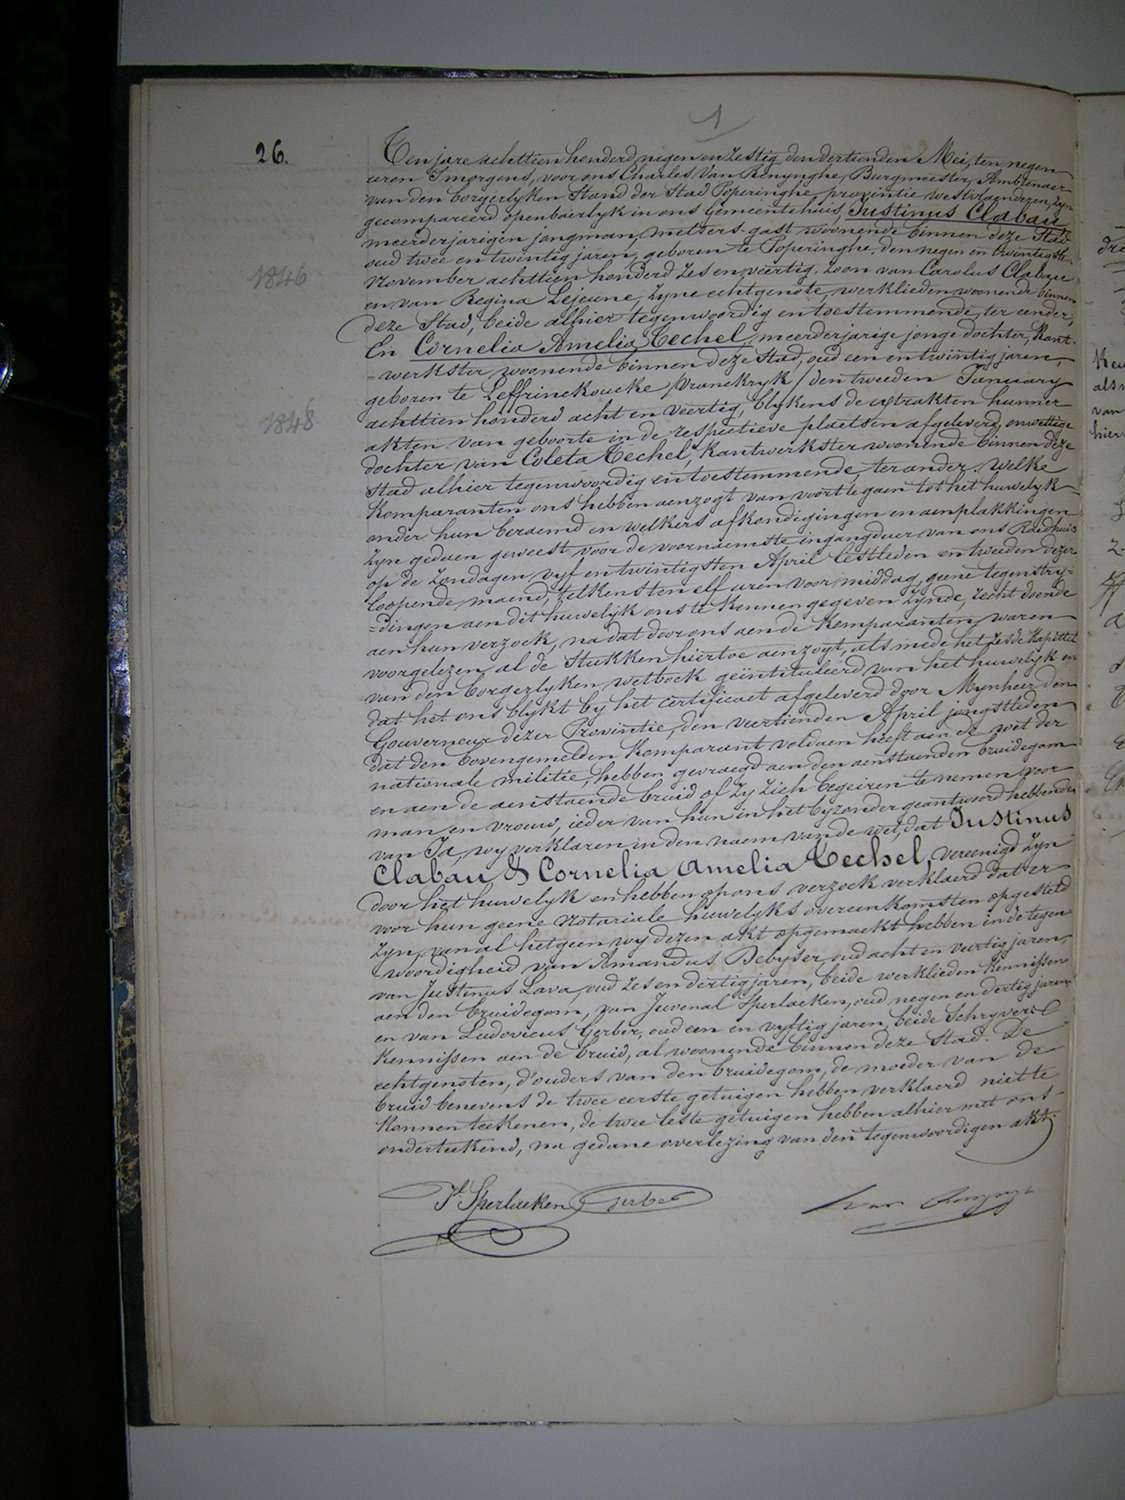 1
26.
Ten jare achttien honderd negen en zestig den dertienden Mei, ten negen
uren 's morgens, voor ons Charles Van Renynghe, Burgmeester, Ambtenaer
van den borgerlyken Stand der Stad Poperinghe, provintie westvlaenderen, zyn
gecompareerd openbaerlyk in ons Gemeentehuis, Justinus Clabau
meerderjarigen jongman, metsers-gast, woonende binnen deze Stad
oud twee en twintig jaren, geboren te Poperinghe, den negen en twintigsten
November achttien honderd zes en veertig, zoon van Carolus Clabau
1846
en van Regina Lejeune, zyne echtgenote, werklieden woonende binnen
deze Stad, beide alhier tegenwoordig en toestemmende, ter eender,
En Cornelia Amelia Techel, meerderjarige jonge dochter, Kant-
-werkster, woonende binnen deze stad, oud een en twintig jaren,
geboren te Leffrinckoucke (Vrankryk) den tweeden January
1848
achttien honderd acht en veertig, blykens de extrakten hunner
akten van geboorte in de respectieve plaetsen afgeleverd, onwettige
dochter van Coleta Techel, Kantwerkster woonende binnen deze
Stad alhier tegenwoordig en toestemmende, ter ander: welke
Komparanten ons hebben aenzogt van voort te gaen tot het huwelyk
onder hun beraemd en welkers afkondigingen en aenplakkingen
zyn gedaen geweest voor de voornaemste ingangdeur van ons Raedhuis
op de Zondagen vyf en twintigsten April lestleden en tweeden dezer
loopende maend, telkensten elf uren voor middag, geene tegenstry-
=dingen aen dit huwelyk ons te kennen gegeven zynde, recht doende
aen hun verzoek, na dat door ons aen de Komparanten, waren
voorgelezen, al de Stukken hiertoe aenzogt, als mede het zesde Kapittel
van den borgerlyken wetboek geïntituleerd van het huwelyk en
dat het ons blykt by het certificaet afgeleverd door Mynheer den
Gouverneur dezer Provintie, den veertienden April jongstleden
dat den bovengemelden Komparant voldaen heeft aen de wet der
nationale militie, hebben gevraegd aen den aenstaenden bruidegom
en aen de aenstaende bruid of zy zich begeiren te nemen voor
man en vrouw, ieder van hun in het byzonder geantwoord hebbende
van Ja, wy verklaren in den naem van de wet, dat Justinus
Clabau & Cornelia Amelia Techel, vereenigd zyn
door het huwelyk en hebben op ons verzoek verklaerd dat er
voor hun geene Notariale huwelyks overeenkomsten opgesteld
zyn, van al hetgeen wy dezen akt opgemaekt hebben in de tegen-
woordigheid van Amandus Debyser, oud acht en veertig jaren,
van Justinus Lava, oud zes en dertig jaren, beide werklieden Kennissen
aen den bruidegom, van Juvenal Sperlaeken, oud negen en dertig jaren,
en van Ludovicus Gerber, oud een en vyftig jaren, beide Schryvers
Kennissen aen de bruid, al woonende binnen deze Stad. De
echtgenoten, d'ouders van den bruidegom, de moeder van de
bruid benevens de twee eerste getuigen hebben verklaerd niet te
konnen teekenen, de twee leste getuigen hebben alhier met ons
onderteekend, na gedane overlezing van den tegenwoordigen akt.
Jl Sperlaeken Gerber